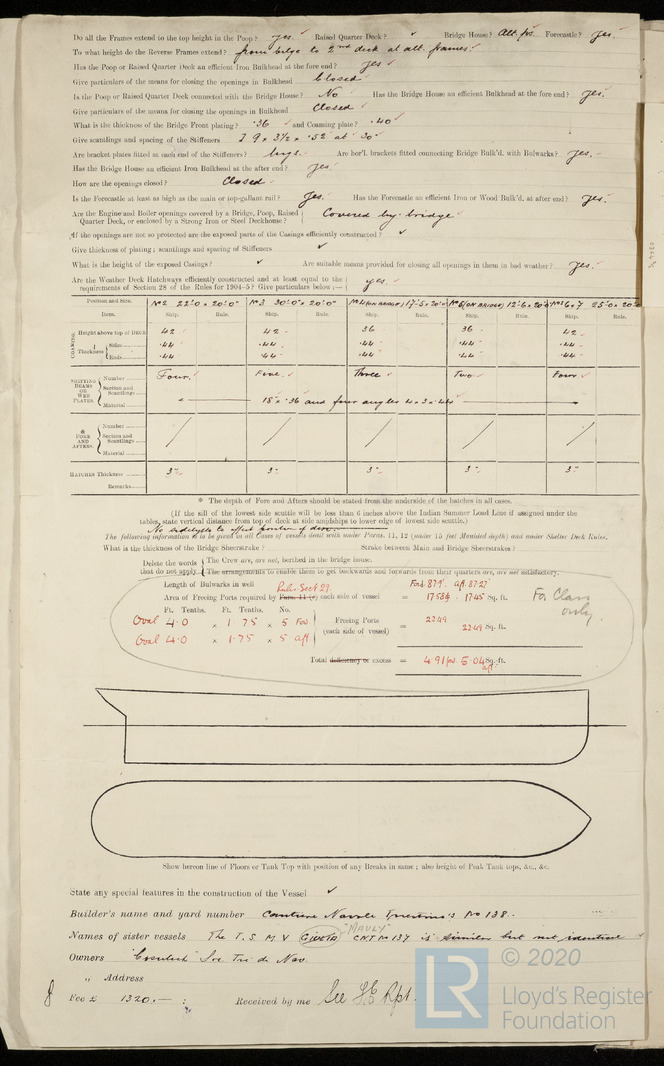 Do all the Frames extend to the top height in the Poop? yes. ✓ Raised Quarter Deck? ✓ Bridge House? Alt. frs. Forecastle? yes. ✓
To what height do the Reverse Frames extend? from bilge to 2nd deck at alt. frames. ✓
Has the Poop or Raised Quarter Deck an efficient Iron Bulkhead at the fore end? yes ✓
Give particulars of the means for closing the openings in Bulkhead Closed ✓
Is the Poop or Raised Quarter Deck connected with the Bridge House? No ✓ Has the Bridge House an efficient Bulkhead at the fore end? yes. ✓
Give particulars of the means for closing the openings in Bulkhead Closed ✓
What is the thickness of the Bridge Front plating? .36 ✓ and Coaming plate? .40 ✓
Give scantlings and spacing of the Stiffeners 9 x 3½ x .52 at 30" ✓
Are bracket plates fitted at each end of the Stiffeners? lugs. ✓ Are hor'l. brackets fitted connecting Bridge Bulk'd. with Bulwarks? yes. ✓
Has the Bridge House an efficient Iron Bulkhead at the after end? yes ✓
How are the openings closed? Closed ✓
Is the Forecastle at least as high as the main or top-gallant rail? yes. ✓ Has the Forecastle an efficient Iron or Wood Bulk'd. at after end? yes. ✓
Are the Engine and Boiler openings covered by a Bridge, Poop, Raised
Quarter Deck, or enclosed by a Strong Iron or Steel Deckhouse? Covered by bridge ✓
If the openings are not so protected are the exposed parts of the Casings efficiently constructed? ✓
Give thickness of plating; scantlings and spacing of Stiffeners ✓
What is the height of the exposed Casings? ✓ Are suitable means provided for closing all openings in them in bad weather? yes. ✓
Are the Weather Deck Hatchways efficiently constructed and at least equal to the
requirements of Section 28 of the Rules for 1904-5? Give particulars below:— yes. ✓
Position and Size. No 2 22'.0 x 20'.0" No 3 30'.0" x 20'.0" No 4 (ON BRIDGE) 17'.5 x 20'.0" No 5 (ON BRIDGE) 12'.6 x 20'.0 No 6 & 7 25'.0 x 20'.0
Item. Ship. Rule. Ship. Rule. Ship. Rule. Ship. Rule. Ship. Rule.
COAMING. Height above top of DECK 42 42 36 36 42
Thickness Sides .44 .44 .44 .44 .44
Ends .44 .44 .44 .44 .44
SHIFTING BEAMS OR WEB PLATES. Number Four. ✓ Five ✓ Three ✓ Two ✓ Four ✓
Section and Scantlings 18" x .36 and four angles 4 x 3 x .44
Material
* FORE AND AFTERS. Number
Section and Scantlings
Material
HATCHES Thickness 3" 3" 3" 3" 3"
Remarks
* The depth of Fore and Afters should be stated from the underside of the hatches in all cases.
(If the sill of the lowest side scuttle will be less than 6 inches above the Indian Summer Load Line if assigned under the
tables, state vertical distance from top of deck at side amidships to lower edge of lowest side scuttle.)
No sidelights to affect position of disc
The following information is to be given in all Cases of vessels dealt with under Paras. 11, 12 (under 15 feet Moulded depth) and under Shelter Deck Rules.
What is the thickness of the Bridge Sheerstrake? Strake between Main and Bridge Sheerstrakes?
Delete the words that do not apply
The Crew are, are not, berthed in the bridge house.
The arrangements to enable them to get backwards and forwards from their quarters are, are not satisfactory.
Length of Bulwarks in well Ford 87.9'. aft 87.27
Rule Sect 29.
Area of Freeing Ports required by Para. 11 (e) each side of vessel = 17.58 17.45 Sq. ft.
For Class only.
Ft. Tenths. Ft. Tenths. No.
Oval 4.0 x 1.75 x 5 For
Oval 4.0 x 1.75 x 5 aft
Freeing Ports (each side of vessel) = 22.49 22.49 Sq. ft.
Total deficiency or excess = 4.91 for. 5.04 Sq. ft. aft
Show hereon line of Floors or Tank Top with position of any Breaks in same; also height of Peak Tank tops, &c., &c.
State any special features in the construction of the Vessel ✓
Builder's name and yard number Cantiere Navale Triestino's No 138.
Names of sister vessels The T.S.M.V "MAULY" CNT No 137 is similar but not identical
Owners "Cosulich" Soc Tri. di Nav.
" Address
Fee £ 1320.— : Received by me See F.E. Rpt.
LR
© 2020
Lloyd's Register
Foundation